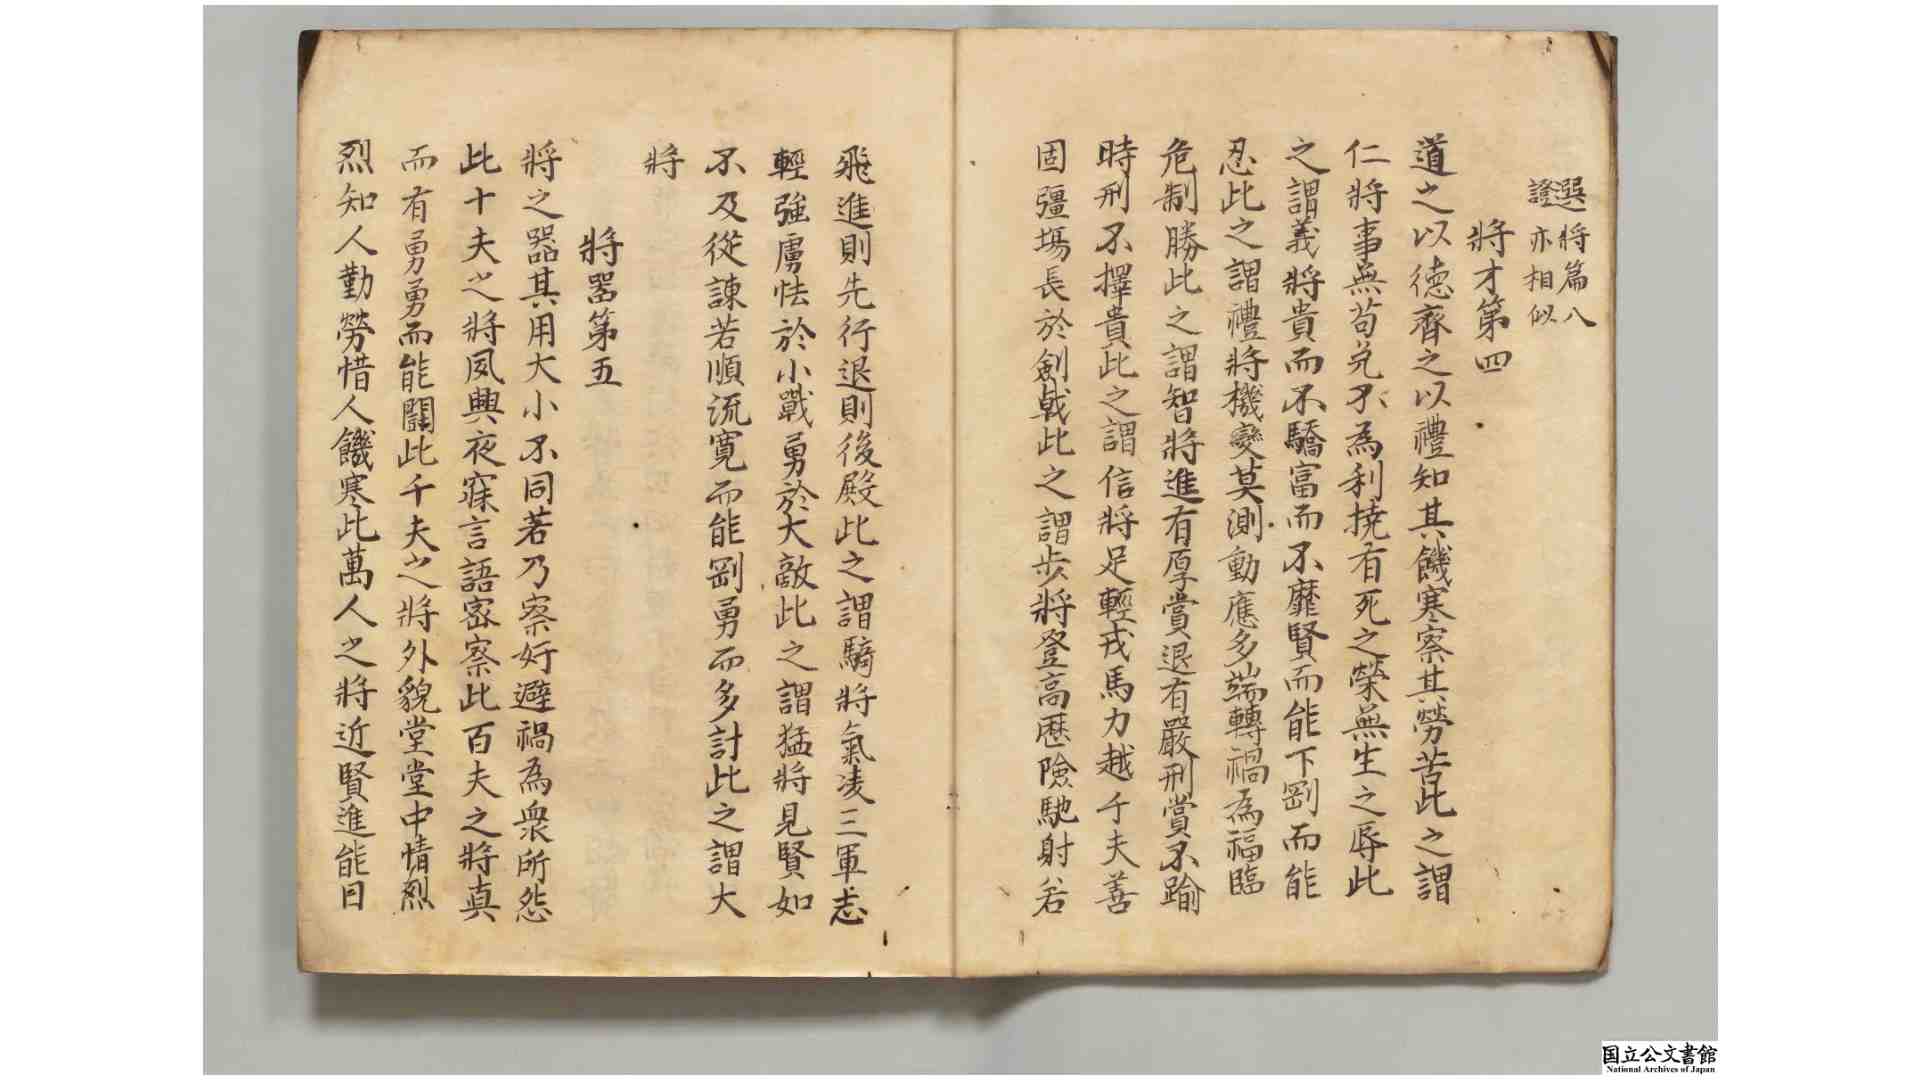 選将篇八
證亦相似
將才第四
道之以德齊之以禮知其饑寒察其勞苦此之謂
仁將事無苟免不為利撓有死之榮無生之辱此
之謂義將貴而不驕富而不靡賢而能下剛而能
忍此之謂禮將機變莫測動應多端轉禍為福臨
危制勝此之謂智將進有厚賞退有嚴刑賞不踰
時刑不擇貴此之謂信將足輕戎馬力越千夫善
固彊埸長於劍戟此之謂步將登高歷險馳射若
飛進則先行退則後殿此之謂騎將氣凌三軍志
輕強虜怯於小戰勇於大敵此之謂猛將見賢如
不及從諫若順流寬而能剛勇而多計此之謂大
將
將噐第五
將之噐其用大小不同若乃察奸避禍為衆所怨
此十夫之將夙興夜寐言語密察此百夫之將真
而有勇勇而能鬪此千夫之將外貌堂堂中情烈
烈知人勤勞惜人饑寒此萬人之將近賢進能日
国立公文書館
National Archives of Japan